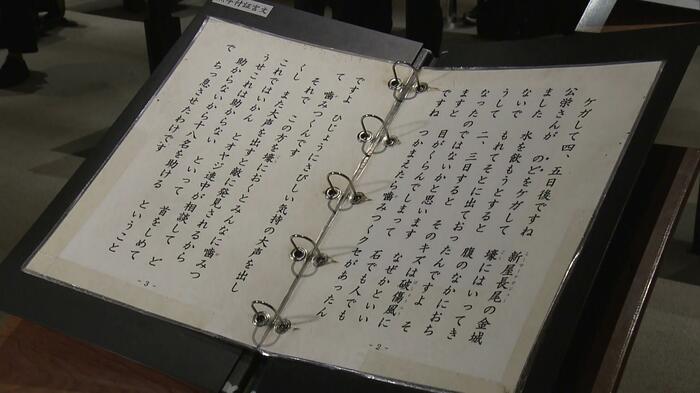 付証言文
ケガして四、五日後ですね　新屋長尾の金城
公栄さんが　のどをケガして　壕にはいってき
ました　水を飲もうとすると　腹のなかにおち
ないで　もれてそとに出ておったんですよ　そ
二、三日すると　そのキズは破傷風に
なったのではないかと思います　なぜかといい
ますと　目がくらんでしまって　石でも人でも
ですね　つかまえたら噛みつくクセがあったん
-2-
ですよ　ひじょうにさびしい気持の大声を出し
て　噛みつくんです
それで　この方を壕におくとみんなに噛みつ
くし　また大声を出すと敵に発見されるから
これではいかん　とオヤジ連中が相談して　ど
うせこれは助からない　といって　首をしめて
助からないから十八名を助ける　ということ
で　ちっ息させたわけです
-3-